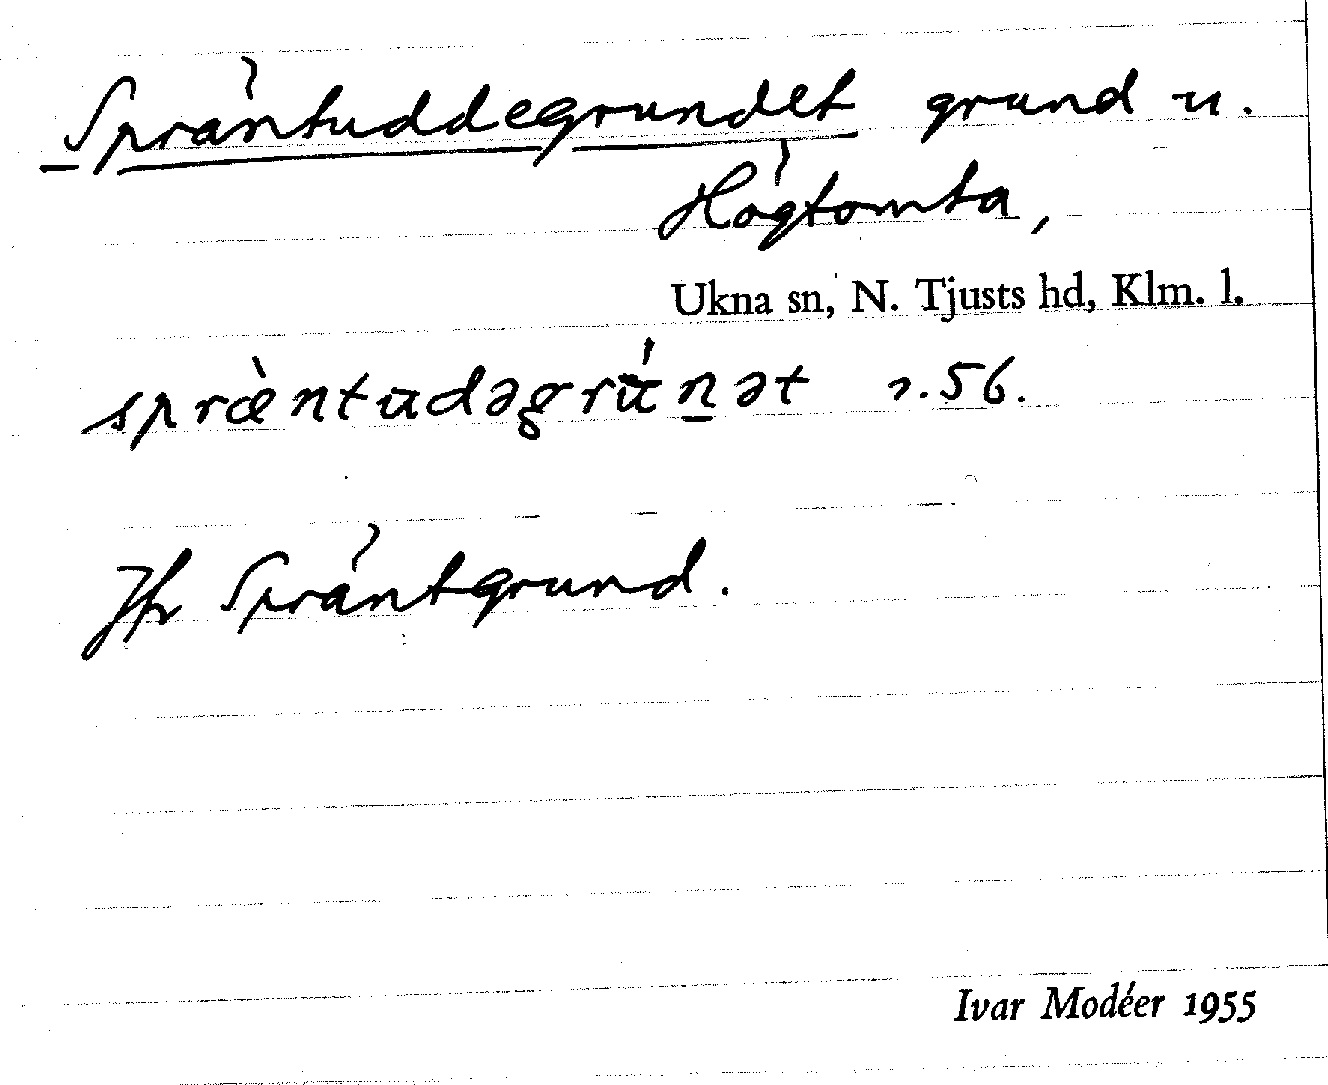 Spräntuddegrundet grund u.
Högtomta,
Ukna sn, N. Tjusts hd, Klm. l.
spræ̀ntudəgrú̄n̲ət 2.56.
Jfr Spräntgrund.
Ivar Modéer 1955